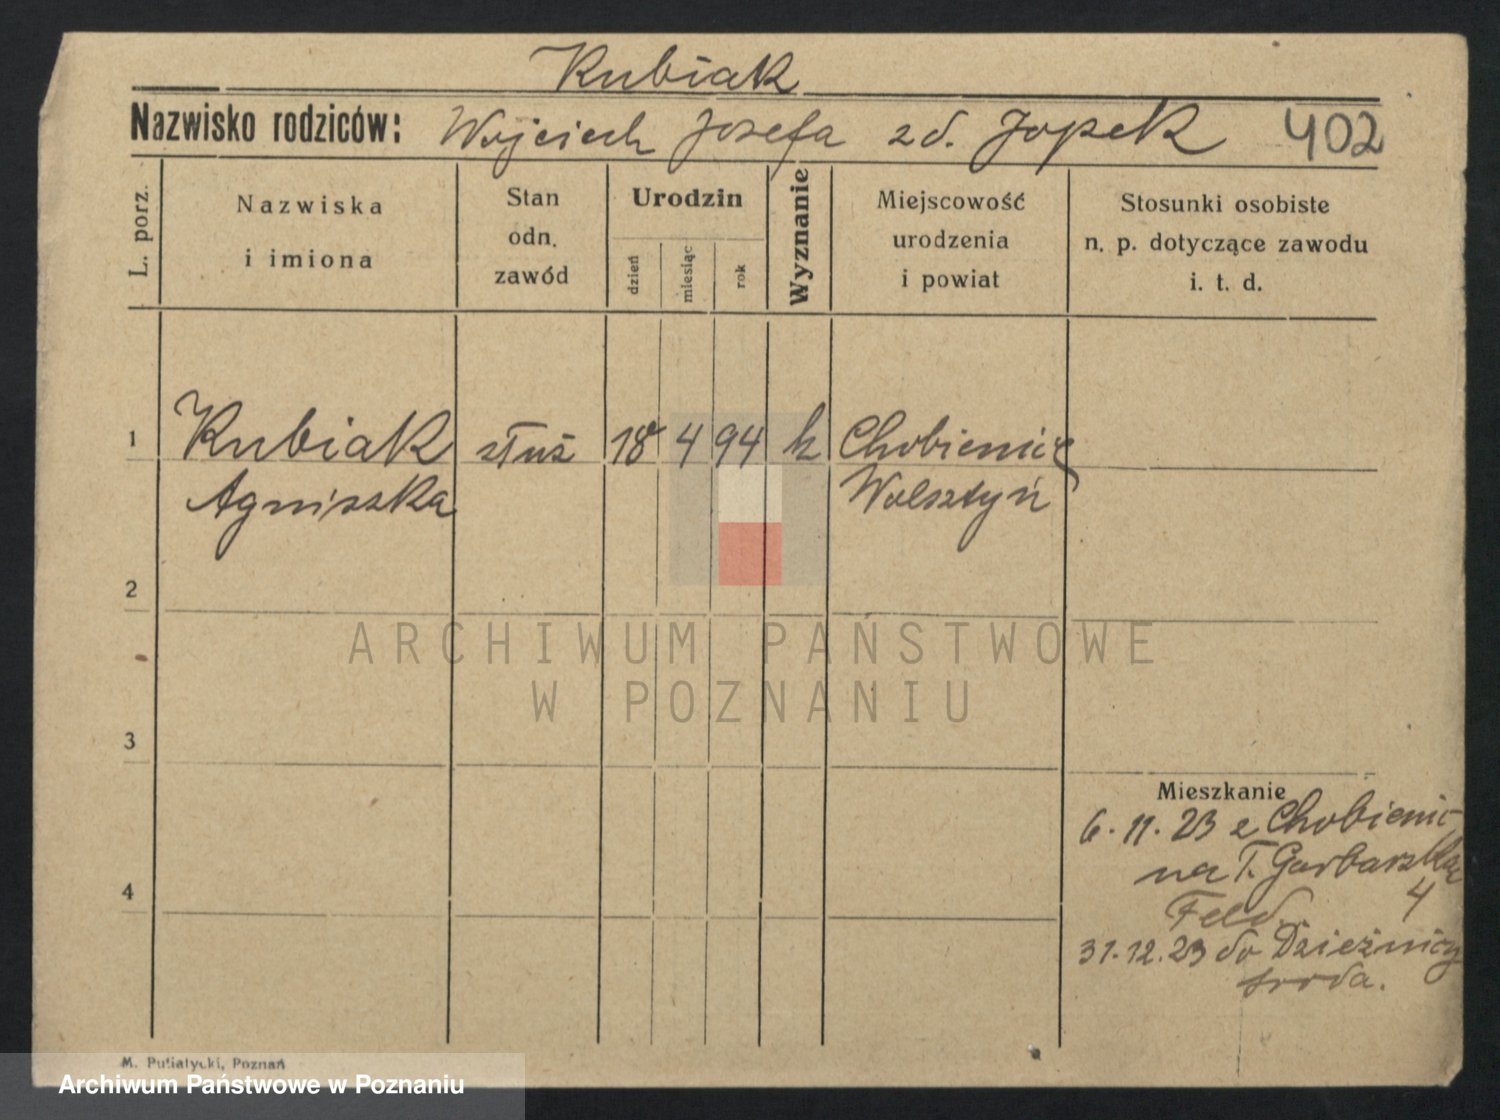 Kubiak
Nazwisko rodziców: Wojciech Józefa zd. Jopek 402
L. porz.
Nazwiska
i imiona
Stan
odn.
zawód
Urodzin
dzień
miesiąc
rok
Wyznanie
Miejscowość
urodzenia
i powiat
Stosunki osobiste
n. p. dotyczące zawodu
i. t. d.
1 Kubiak służ 18 4 94 k Chobienice
Agniszka Wolsztyń
2
ARCHIWUM PAŃSTWOWE
W POZNANIU
3
Mieszkanie
6. 11. 23 z Chobienic
na T. Garbarską
4
Feld
4
31. 12. 23 do
Środa.
M. Putiatycki, Poznań
Archiwum Państwowe w Poznaniu